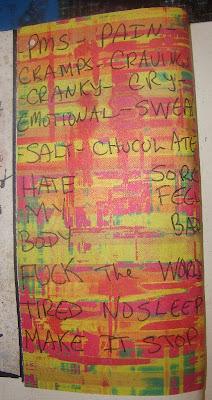 -PMS- PAIN-
CRAMPS-CRAVING
-CRANKY- CRY-
EMOTIONAL-SWEA
-SALT-CHOCOLATE
HATE SORE
MY FEEL
BODY BAD
FUCK the WORLD
TIRED NO SLEEP
MAKE IT STOP